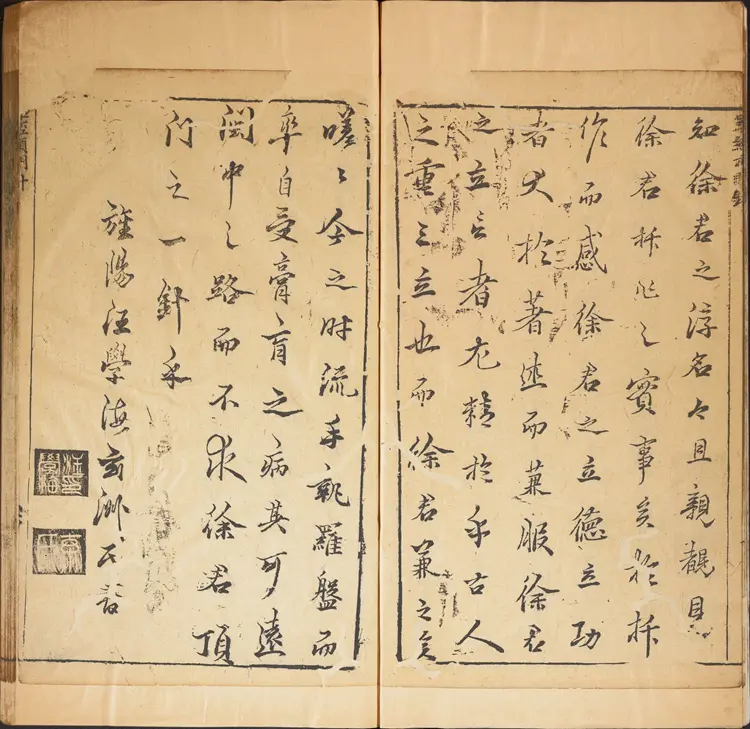 知徐君之浮名且親覩目
徐君之實事矣於
作而感徐君之立德立功
者又於著述而兼服徐君
之立言者尤精於乎古人
之重三立也而徐君兼之矣
嗟〻今之時流手執羅盤而
卒自受膏肓之病其可遠
閩中之路而不求徐君頂
門之一針乎
旌陽汪學海玄洲氏